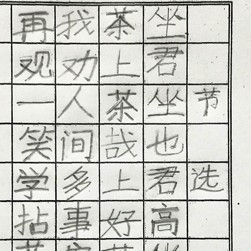 节选
坐君坐也君高
茶上茶哉上好
我劝人间多事
再观一笑学拈